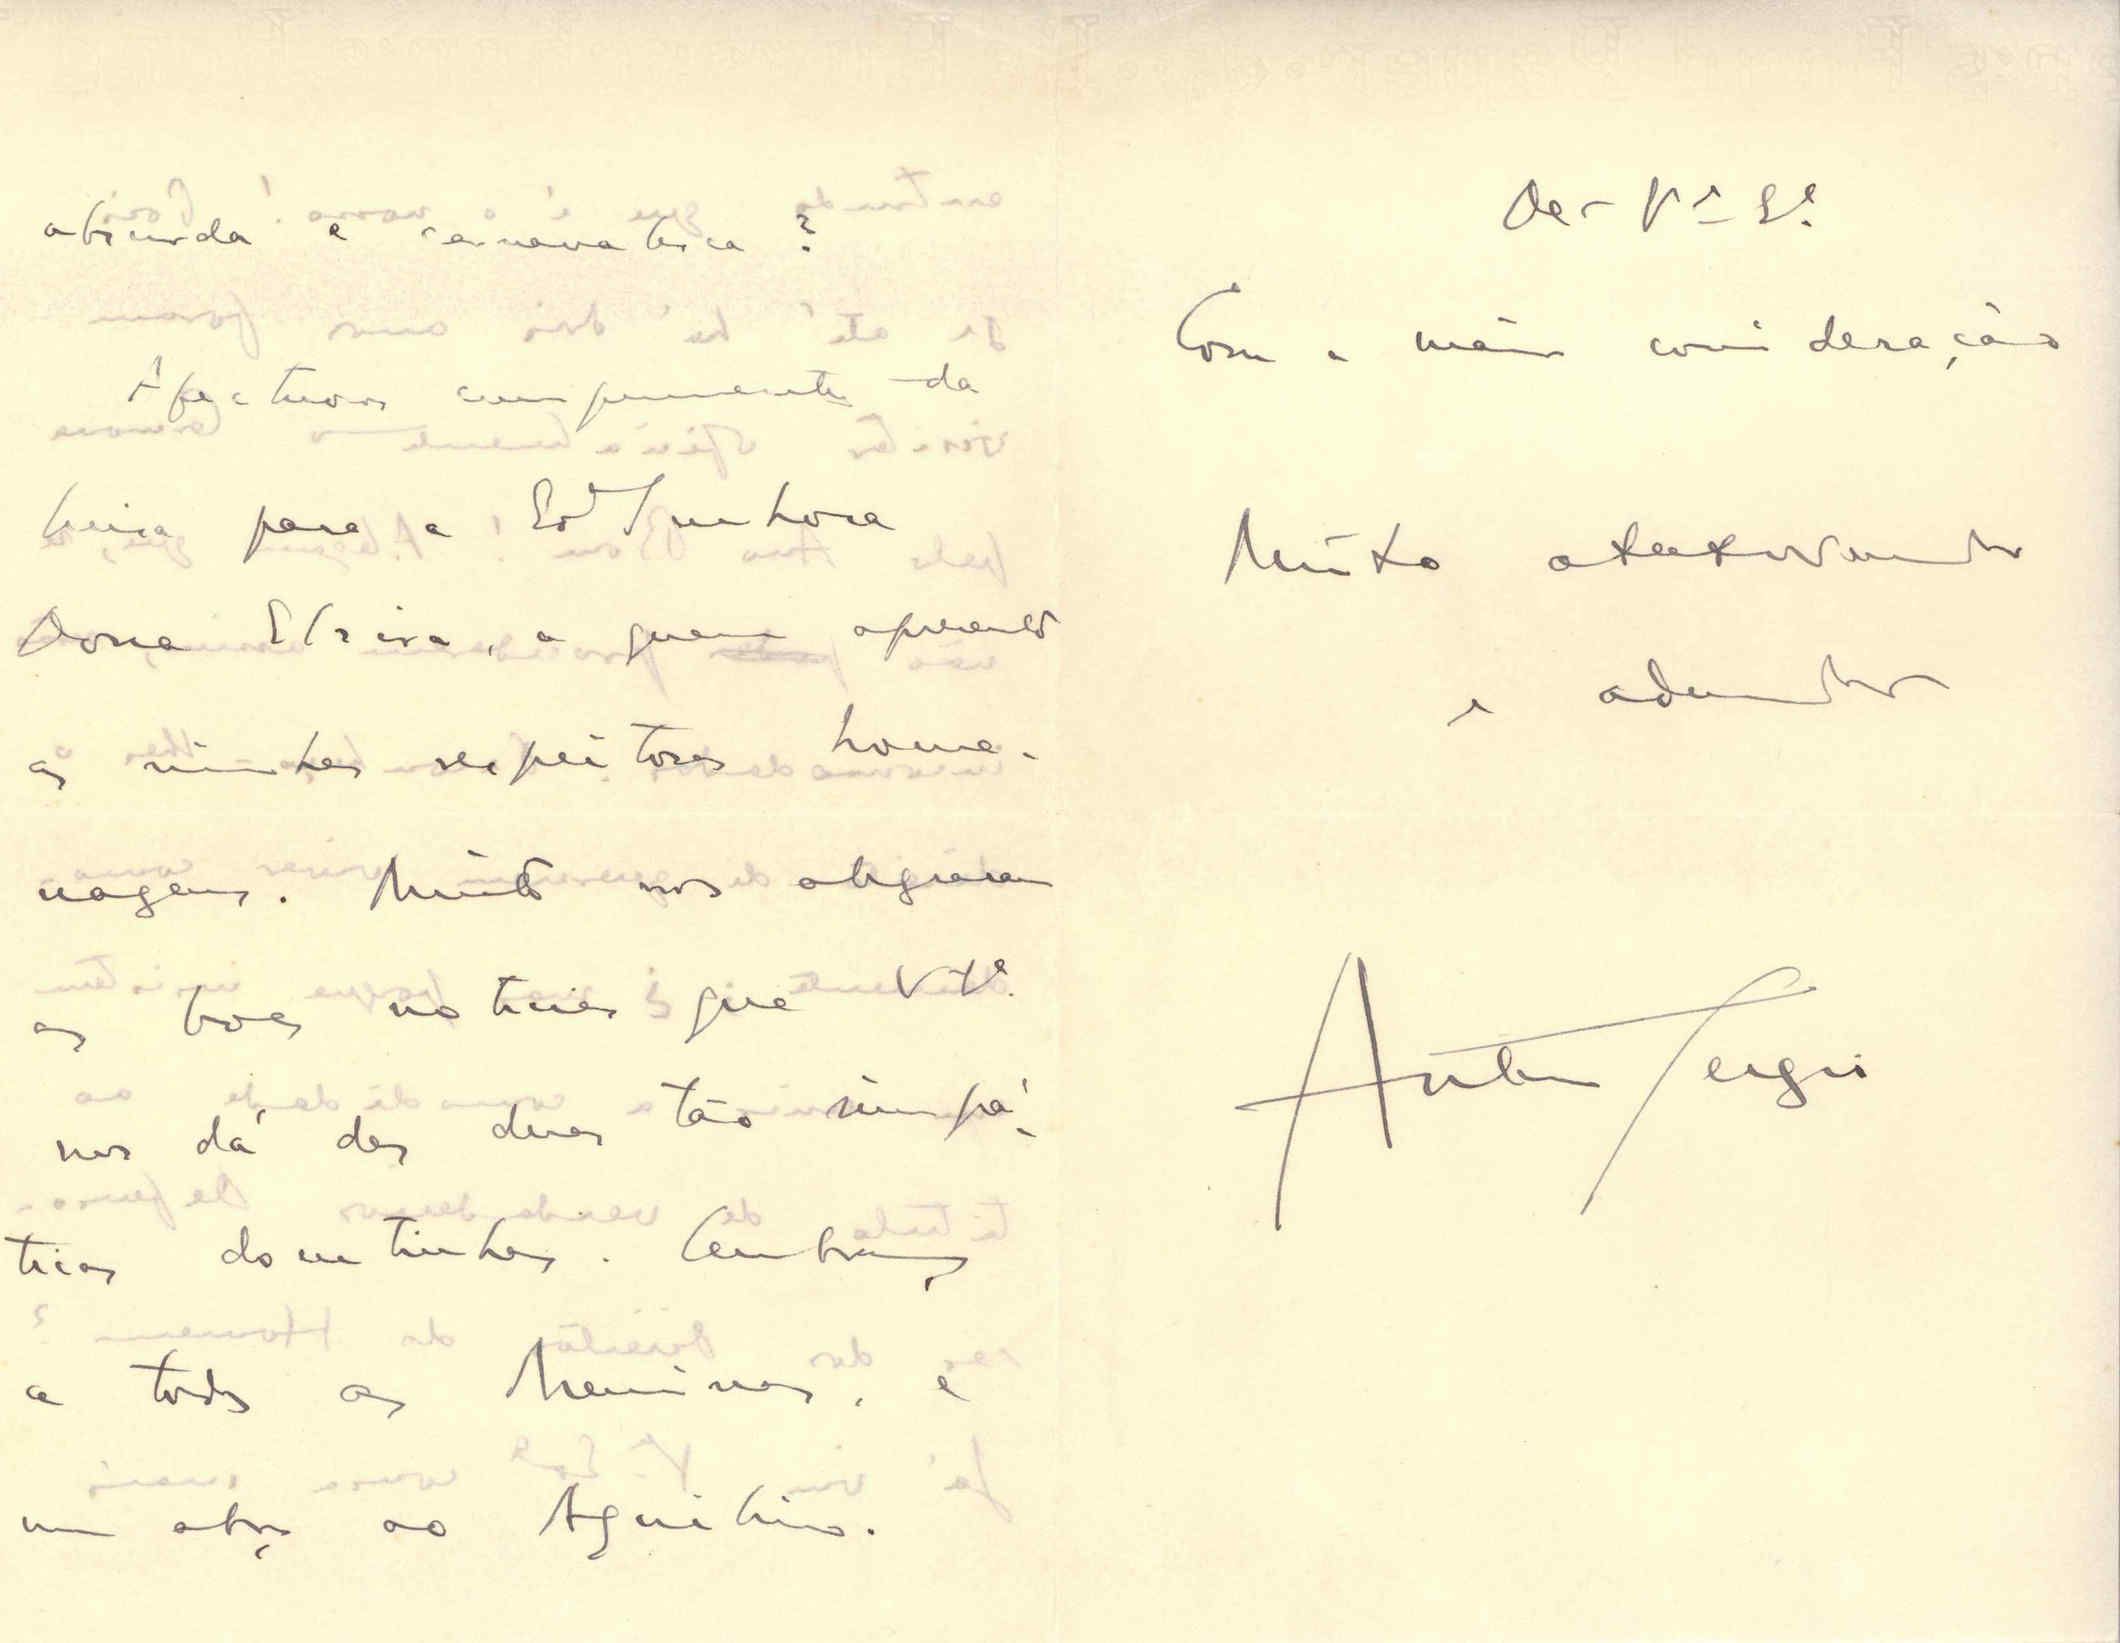 absurda e carnavalesca?
Afectuosos cumprimentos da
Luisa para a Exª Senhora
Dona Elzira, a quem apresento
as minhas respeitosas home-
nagens. Muito nos alegraram
as boas noticias que V. Exª.
nos dá das duas tão simpá-
ticas doentinhas. Lembranças
a todos os Meninos, e
um abraço ao Aquilino.
De V. Exª
Com a maior consideração
Muito atento venerador
e admirador
António Sergio